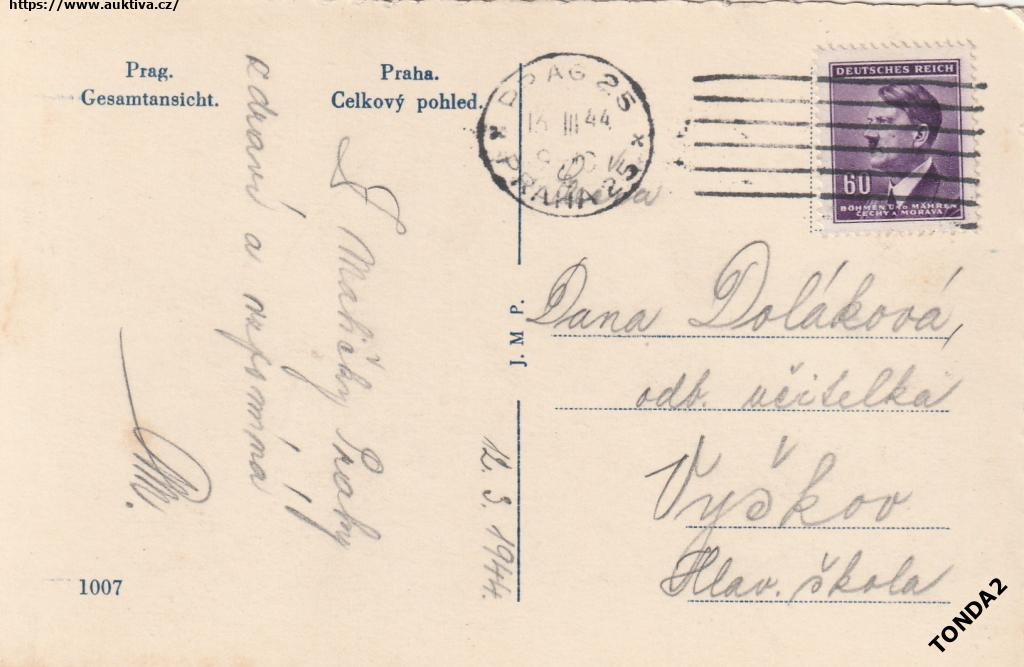 https://www.auktiva.cz/
Prag.
Gesamtansicht.
Praha.
Celkový pohled.
PRAG 25
III 44
PRAHA 25
DEUTSCHES REICH
60
BÖHMEN UND MÄHREN
ČECHY A MORAVA
Z Matičky Prahy
zdraví a vzpomíná
M.
12. 3. 1944.
J. M P.
Dana Doláková,
odb. učitelka
Vyškov
Hlav. škola
1007
TONDA2